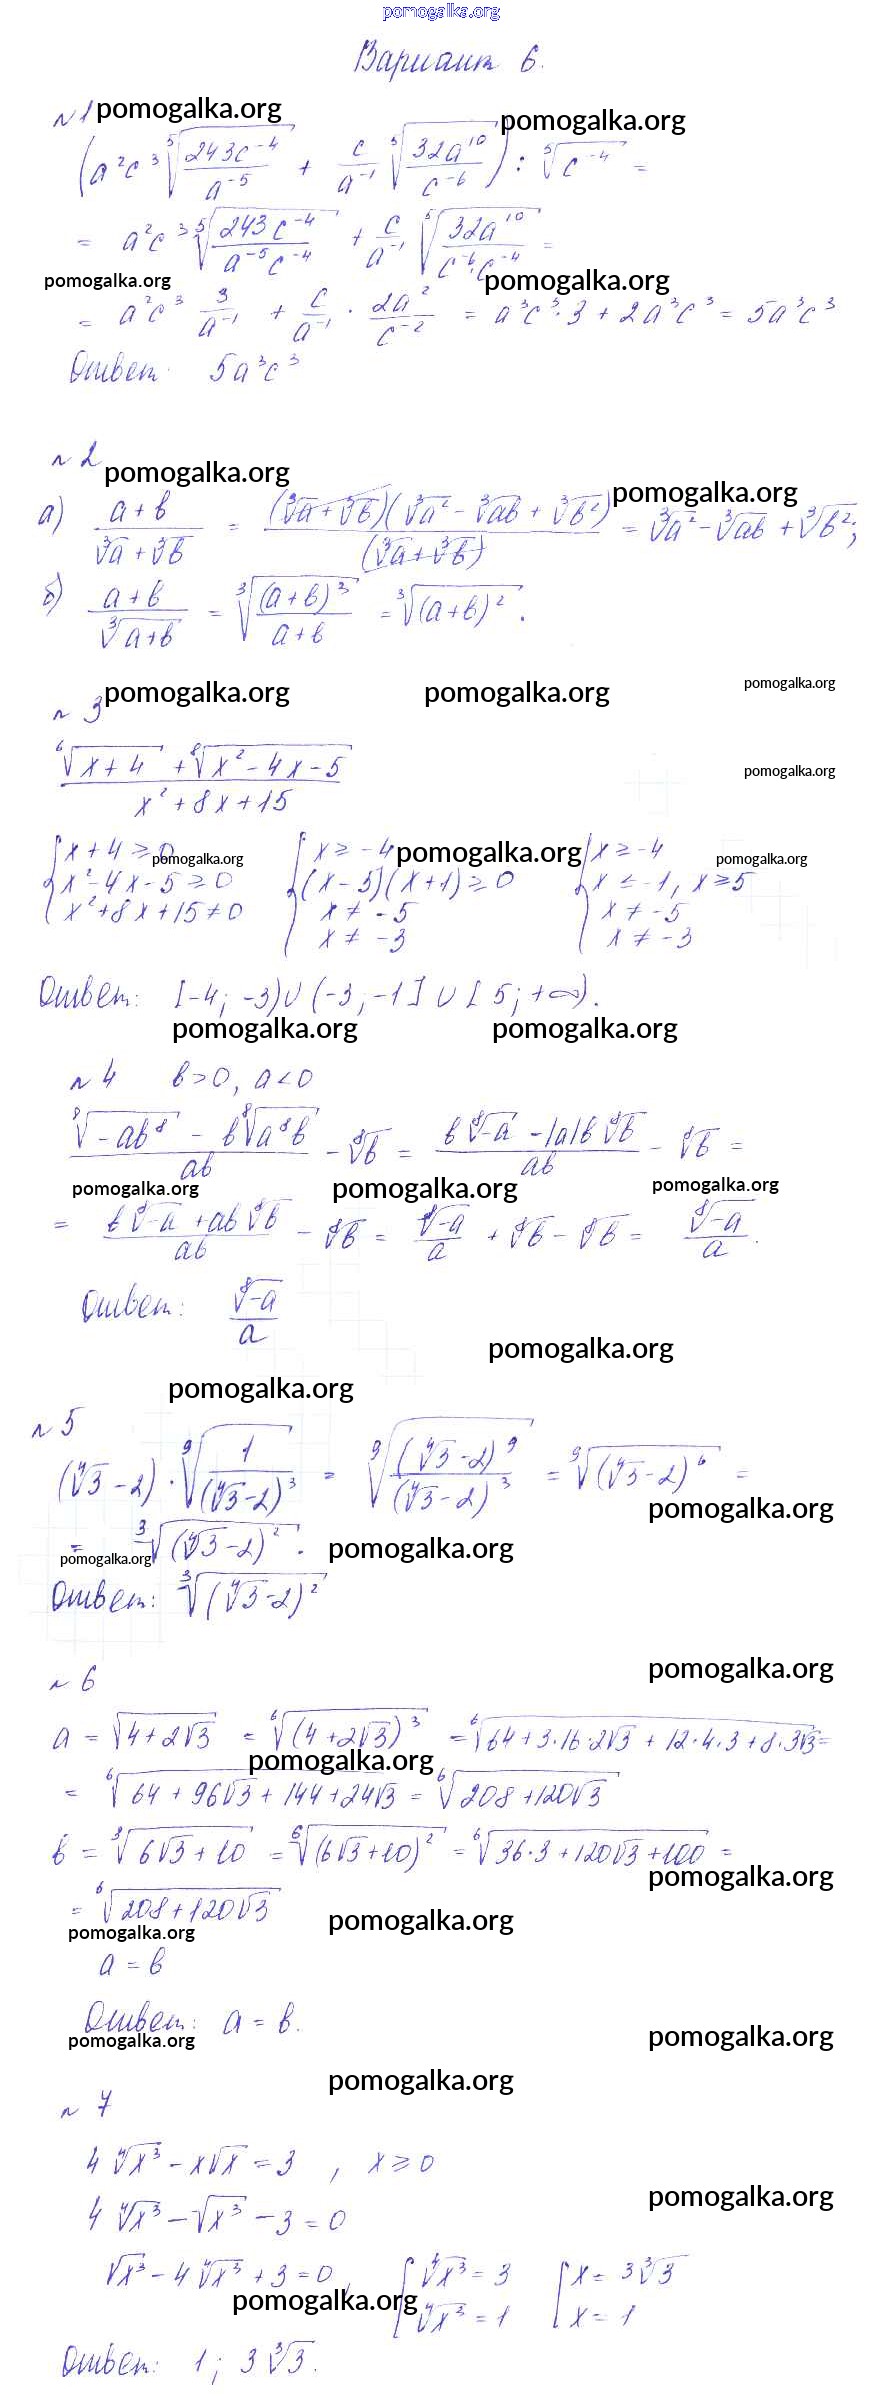 pomogalka.org
Вариант 6.
№1 pomogalka.org pomogalka.org
(a²c³ ⁵√(243c⁻⁴/a⁻⁵) + c/a⁻¹ ⁵√(32a¹⁰/c⁻⁶)) : ⁵√(c⁻⁴) =
= a²c³ ⁵√(243c⁻⁴/(a⁻⁵c⁻⁴)) + c/a⁻¹ ⁵√(32a¹⁰/(c⁻⁶·c⁻⁴)) =
pomogalka.org pomogalka.org
= a²c³ 3/a⁻¹ + c/a⁻¹ · 2a²/c⁻² = a³c³·3 + 2a³c³ = 5a³c³
Ответ: 5a³c³
№2
pomogalka.org pomogalka.org
а) (a+b)/(³√a + ³√b) = (³√a + ³√b)(³√a² - ³√ab + ³√b²)/(³√a + ³√b) = ³√a² - ³√ab + ³√b²;
б) (a+b)/³√(a+b) = ³√((a+b)³/(a+b)) = ³√(a+b)².
№3 pomogalka.org pomogalka.org pomogalka.org
(⁶√(x+4) + ⁸√(x²-4x-5))/(x²+8x+15)
pomogalka.org
{x+4≥0 {x≥-4 {x≥-4
pomogalka.org pomogalka.org pomogalka.org
x²-4x-5≥0 (x-5)(x+1)≥0 x≤-1, x≥5
x²+8x+15≠0 x≠-5 x≠-5
x≠-3 x≠-3
Ответ: [-4; -3)∪(-3; -1]∪[5; +∞).
pomogalka.org pomogalka.org
№4 b>0, a<0
(⁸√(-ab⁸) - b⁸√(a⁸b))/(ab) - ⁸√b = (b⁸√(-a) - |a|b⁸√b)/(ab) - ⁸√b =
pomogalka.org pomogalka.org pomogalka.org
= (b⁸√(-a) + ab⁸√b)/(ab) - ⁸√b = ⁸√(-a)/a + ⁸√b - ⁸√b = ⁸√(-a)/a.
Ответ: ⁸√(-a)/a
pomogalka.org
pomogalka.org
№5
(⁴√3-2) · ⁹√(1/(⁴√3-2)³) = ⁹√((⁴√3-2)⁹/(⁴√3-2)³) = ⁹√(⁴√3-2)⁶ =
pomogalka.org
= ³√(⁴√3-2)².
pomogalka.org pomogalka.org
Ответ: ³√(⁴√3-2)²
pomogalka.org
№6
a = √(4+2√3) = ⁶√(4+2√3)³ = ⁶√(64+3·16·2√3+12·4·3+8·3√3) =
pomogalka.org
= ⁶√(64+96√3+144+24√3) = ⁶√(208+120√3)
b = ³√(6√3+10) = ⁶√(6√3+10)² = ⁶√(36·3+120√3+100) =
pomogalka.org
= ⁶√(208+120√3)
pomogalka.org pomogalka.org
a = b
Ответ: a = b.
pomogalka.org pomogalka.org
pomogalka.org
№7
4⁴√x³ - x√x = 3, x≥0
pomogalka.org
4⁴√x³ - √x³ - 3 = 0
√x³ - 4⁴√x³ + 3 = 0, [⁴√x³ = 3 [x = 3³√3
pomogalka.org
⁴√x³ = 1 x = 1
Ответ: 1; 3³√3.